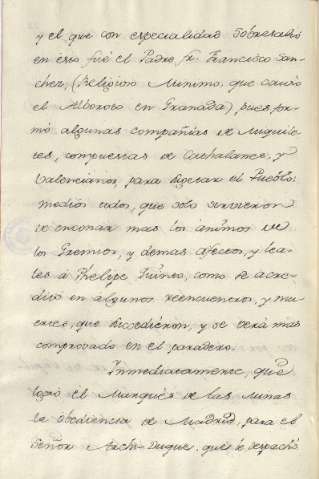 y el que con especialidad sobresalió
en esto fué el Padre fr. Francisco San-
chez, (Religioso Minimo, que causó
el Alboroto en Granada) pues for-
mó algunas compañias de Miquile-
tes, compuestas de Cathalanes, y
Valencianos, para sugetar el Pueblo:
medios todos, que solo sirvieron
de enconar mas los animos de
los Gremios, y demas afectos, y lea-
les á Phelipe Quinto, como se acre-
ditó en algunos reencuentros, y mu-
ertes, que sucedieron, y se verá mas
comprovado en el paradero.
Inmediatamente, que
logró el Marqués de las Minas
la obediencia de Madrid, para el
Señor Archi-Duque, que le despachó